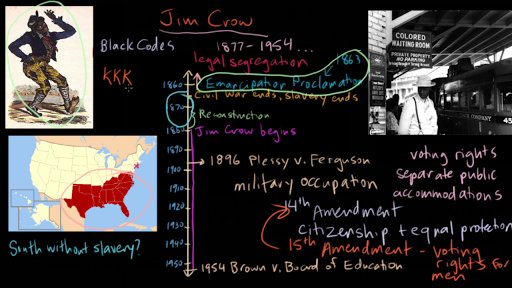 Jim Crow
Black Codes
1877 - 1954...
legal segregation
KKK
1863
Emancipation Proclamation
1860
Civil War ends, slavery ends
1870
Reconstruction
1880
Jim Crow begins
1890
1896 Plessy v. Ferguson
1900
military occupation
1910
1920
14th Amendment
Citizenship + equal protection
1930
15th Amendment - voting
rights for
men
1940
1950
1954 Brown v. Board of Education
South without slavery?
voting rights
separate public
accommodations
COLORED
WAITING ROOM
PRIVATE PROPERTY
NO PARKING